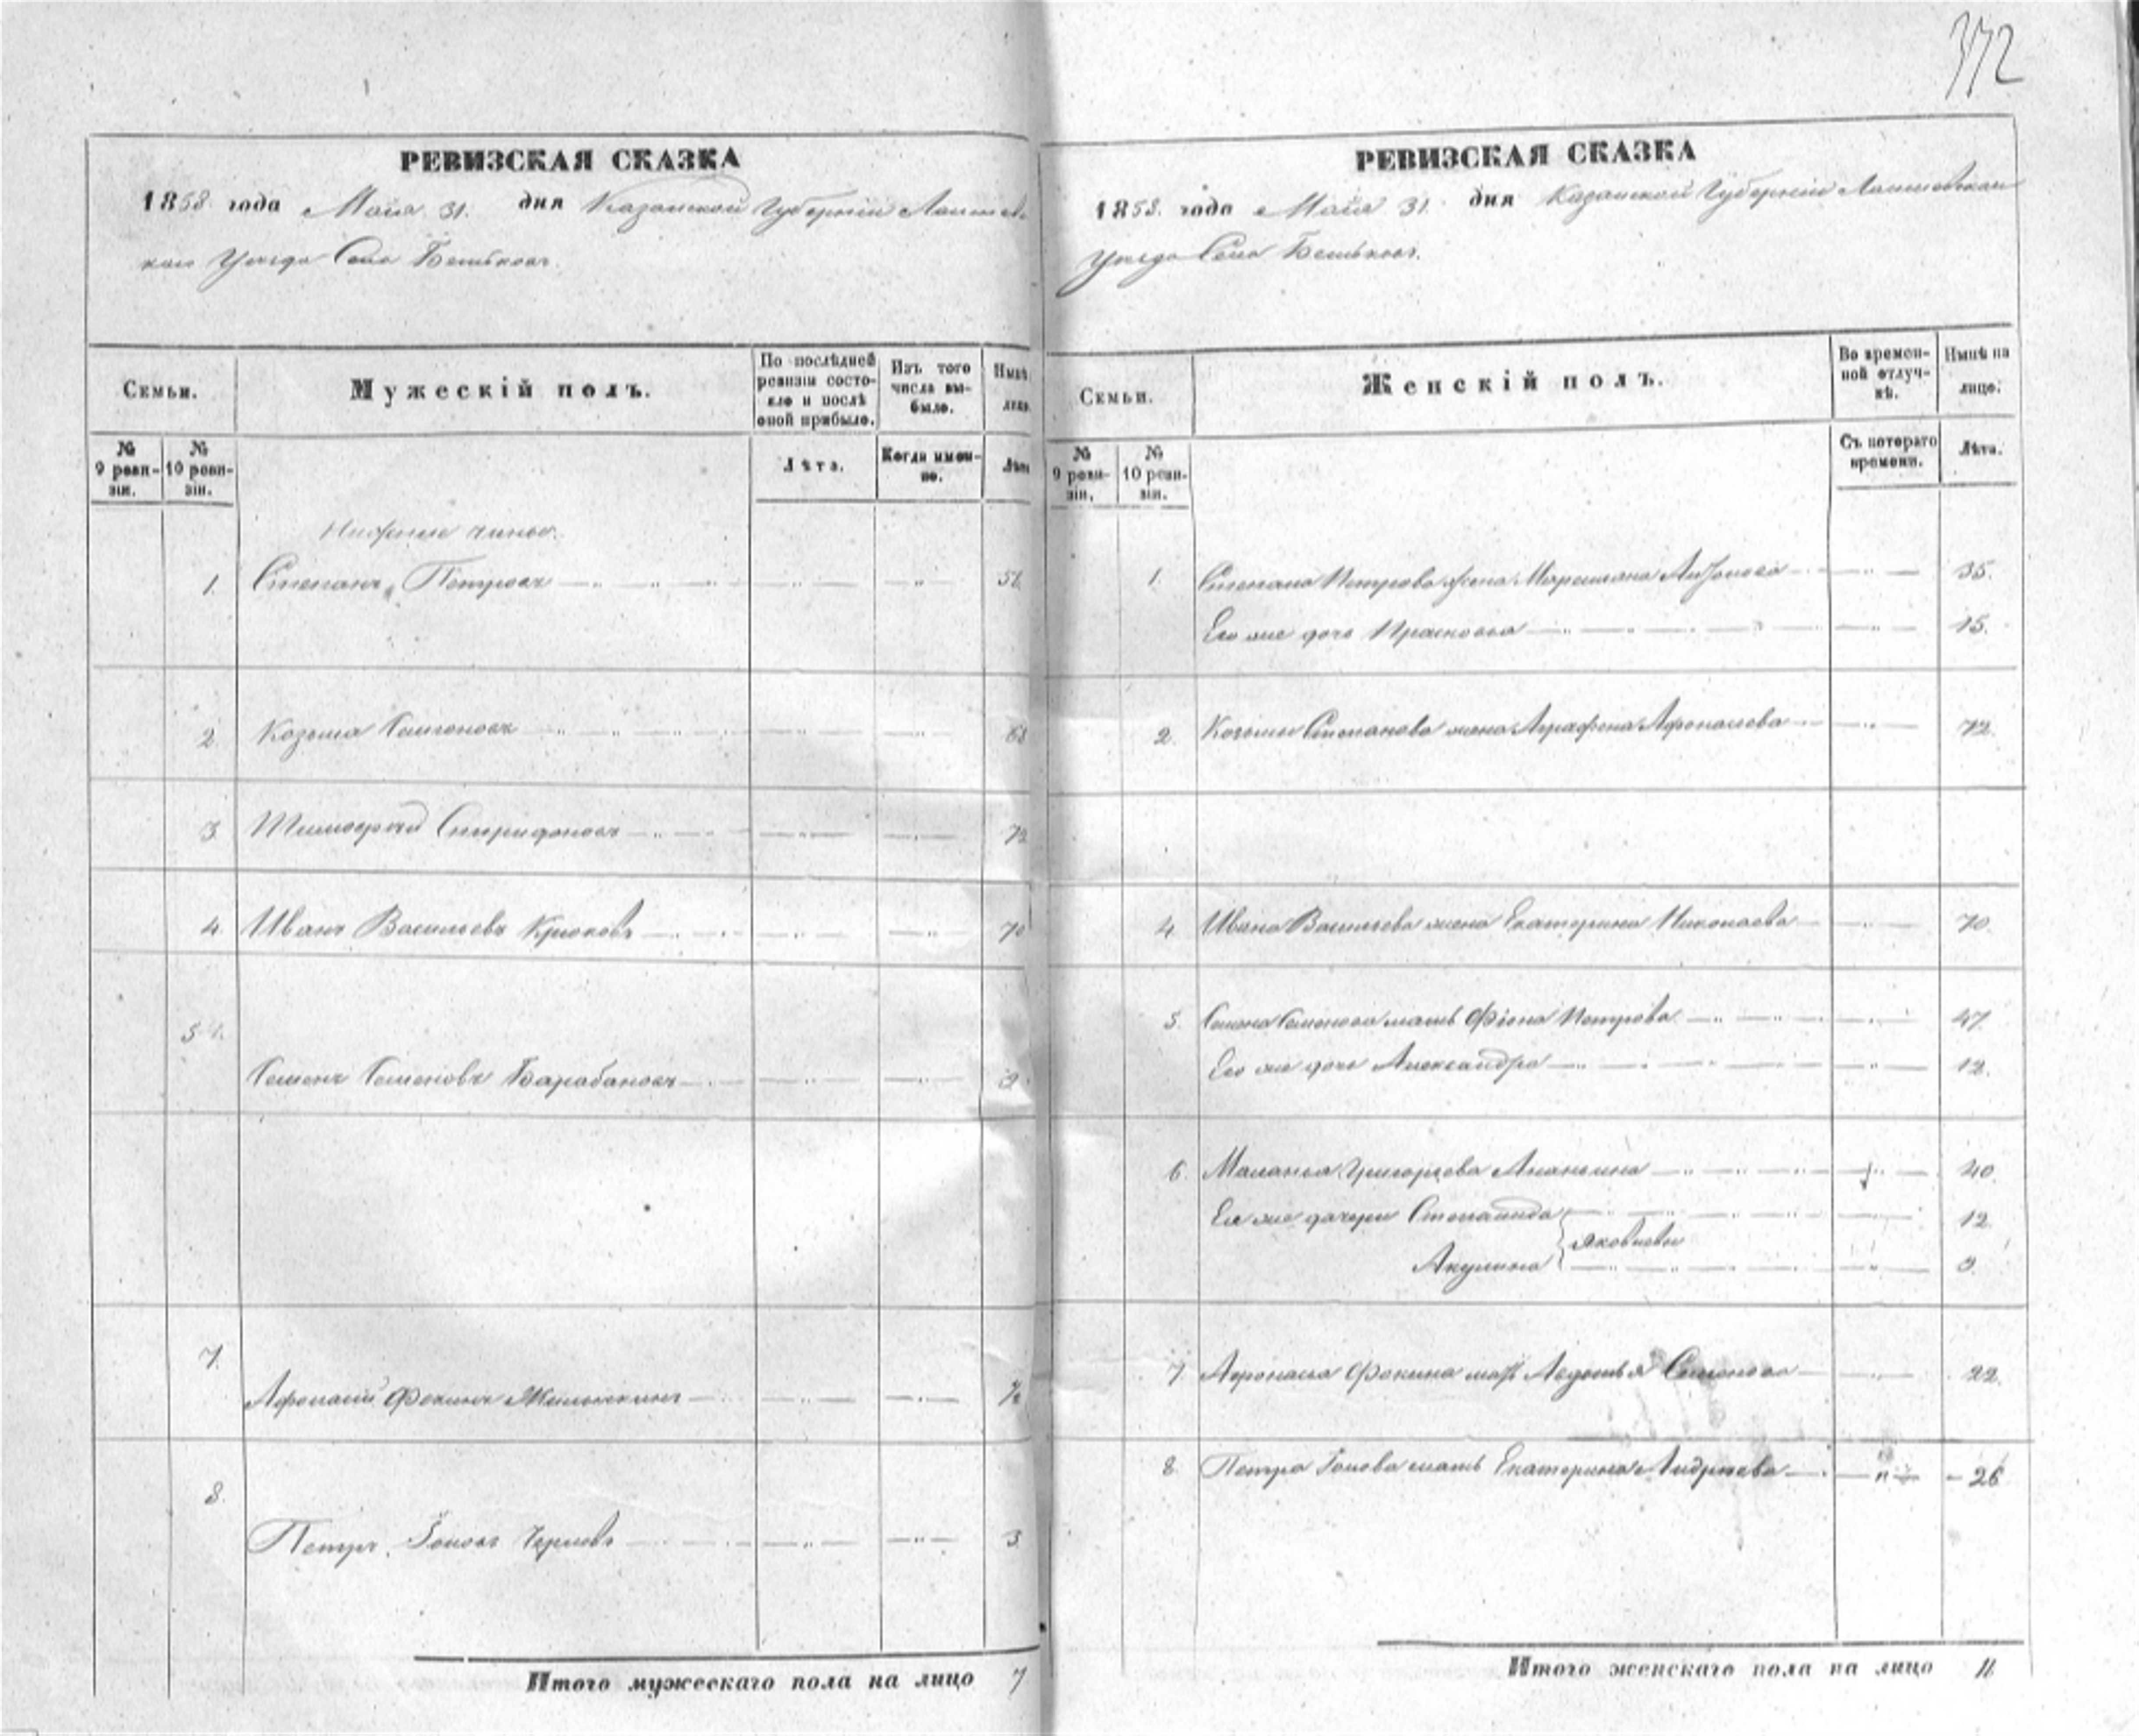 372
РЕВИЗСКАЯ СКАЗКА
1858 года Мая 31. дня Казанской Губернiи Лаишев-
каго Уезда Село
Семьи.
Мужескій полъ.
По послѣдней ревизіи состояло и послѣ оной прибыло.
Изъ того числа выбыло.
Нынѣ
лицо.
№ 9 ревизіи.
№ 10 ревизіи.
Лѣта.
Когда именно.
Лѣта
Нижние чины.
1. Степанъ Петровъ 51
2. Козьма 63
3. Тимофей Спиридоновъ
4. Иванъ Васильевъ Крюковъ 70
5
Семенъ Семеновъ Барабановъ
7.
Афонасий Фокинъ
8.
Петръ Чернов 3
Итого мужескаго пола на лицо 7
РЕВИЗСКАЯ СКАЗКА
1858. года Мая 31. дня Казанской Губернiи
Уезда Село
Семьи.
Женскій полъ.
Во временной отлучкѣ.
Нынѣ на лицо.
№ 9 ревизіи.
№ 10 ревизіи.
Съ котораго времени.
Лѣта.
1. Степана Петрова жена 35.
Его же дочь Прасковья 15.
2. Козьмы жена Аграфена Афонасьева 72.
4. Ивана Васильева жена Екатерина Николаева 70.
5. Семена Семенова мать Фiона Петрова 47
Его же дочь Александра 12.
6. Маланья Григорьева Ананьина 40.
Ея же дочери Степанида 12
Яковлевы
Акулина 9.
7. Афонасья Фокина мать Авдотья 22.
8. Петра мать Екатерина Андреева 26
Итого женскаго пола на лицо 11